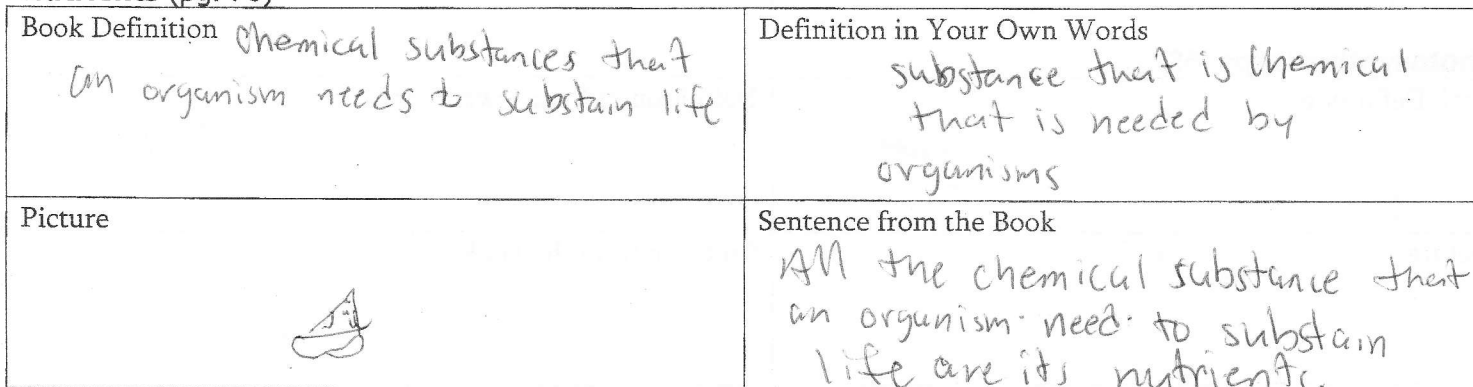 Book Definition Chemical substances that
an organism needs to substain life
Definition in Your Own Words
substance that is chemical
that is needed by
organisms
Picture
Sentence from the Book
All the chemical substance that
an organism need to substain
life are its nutrients.